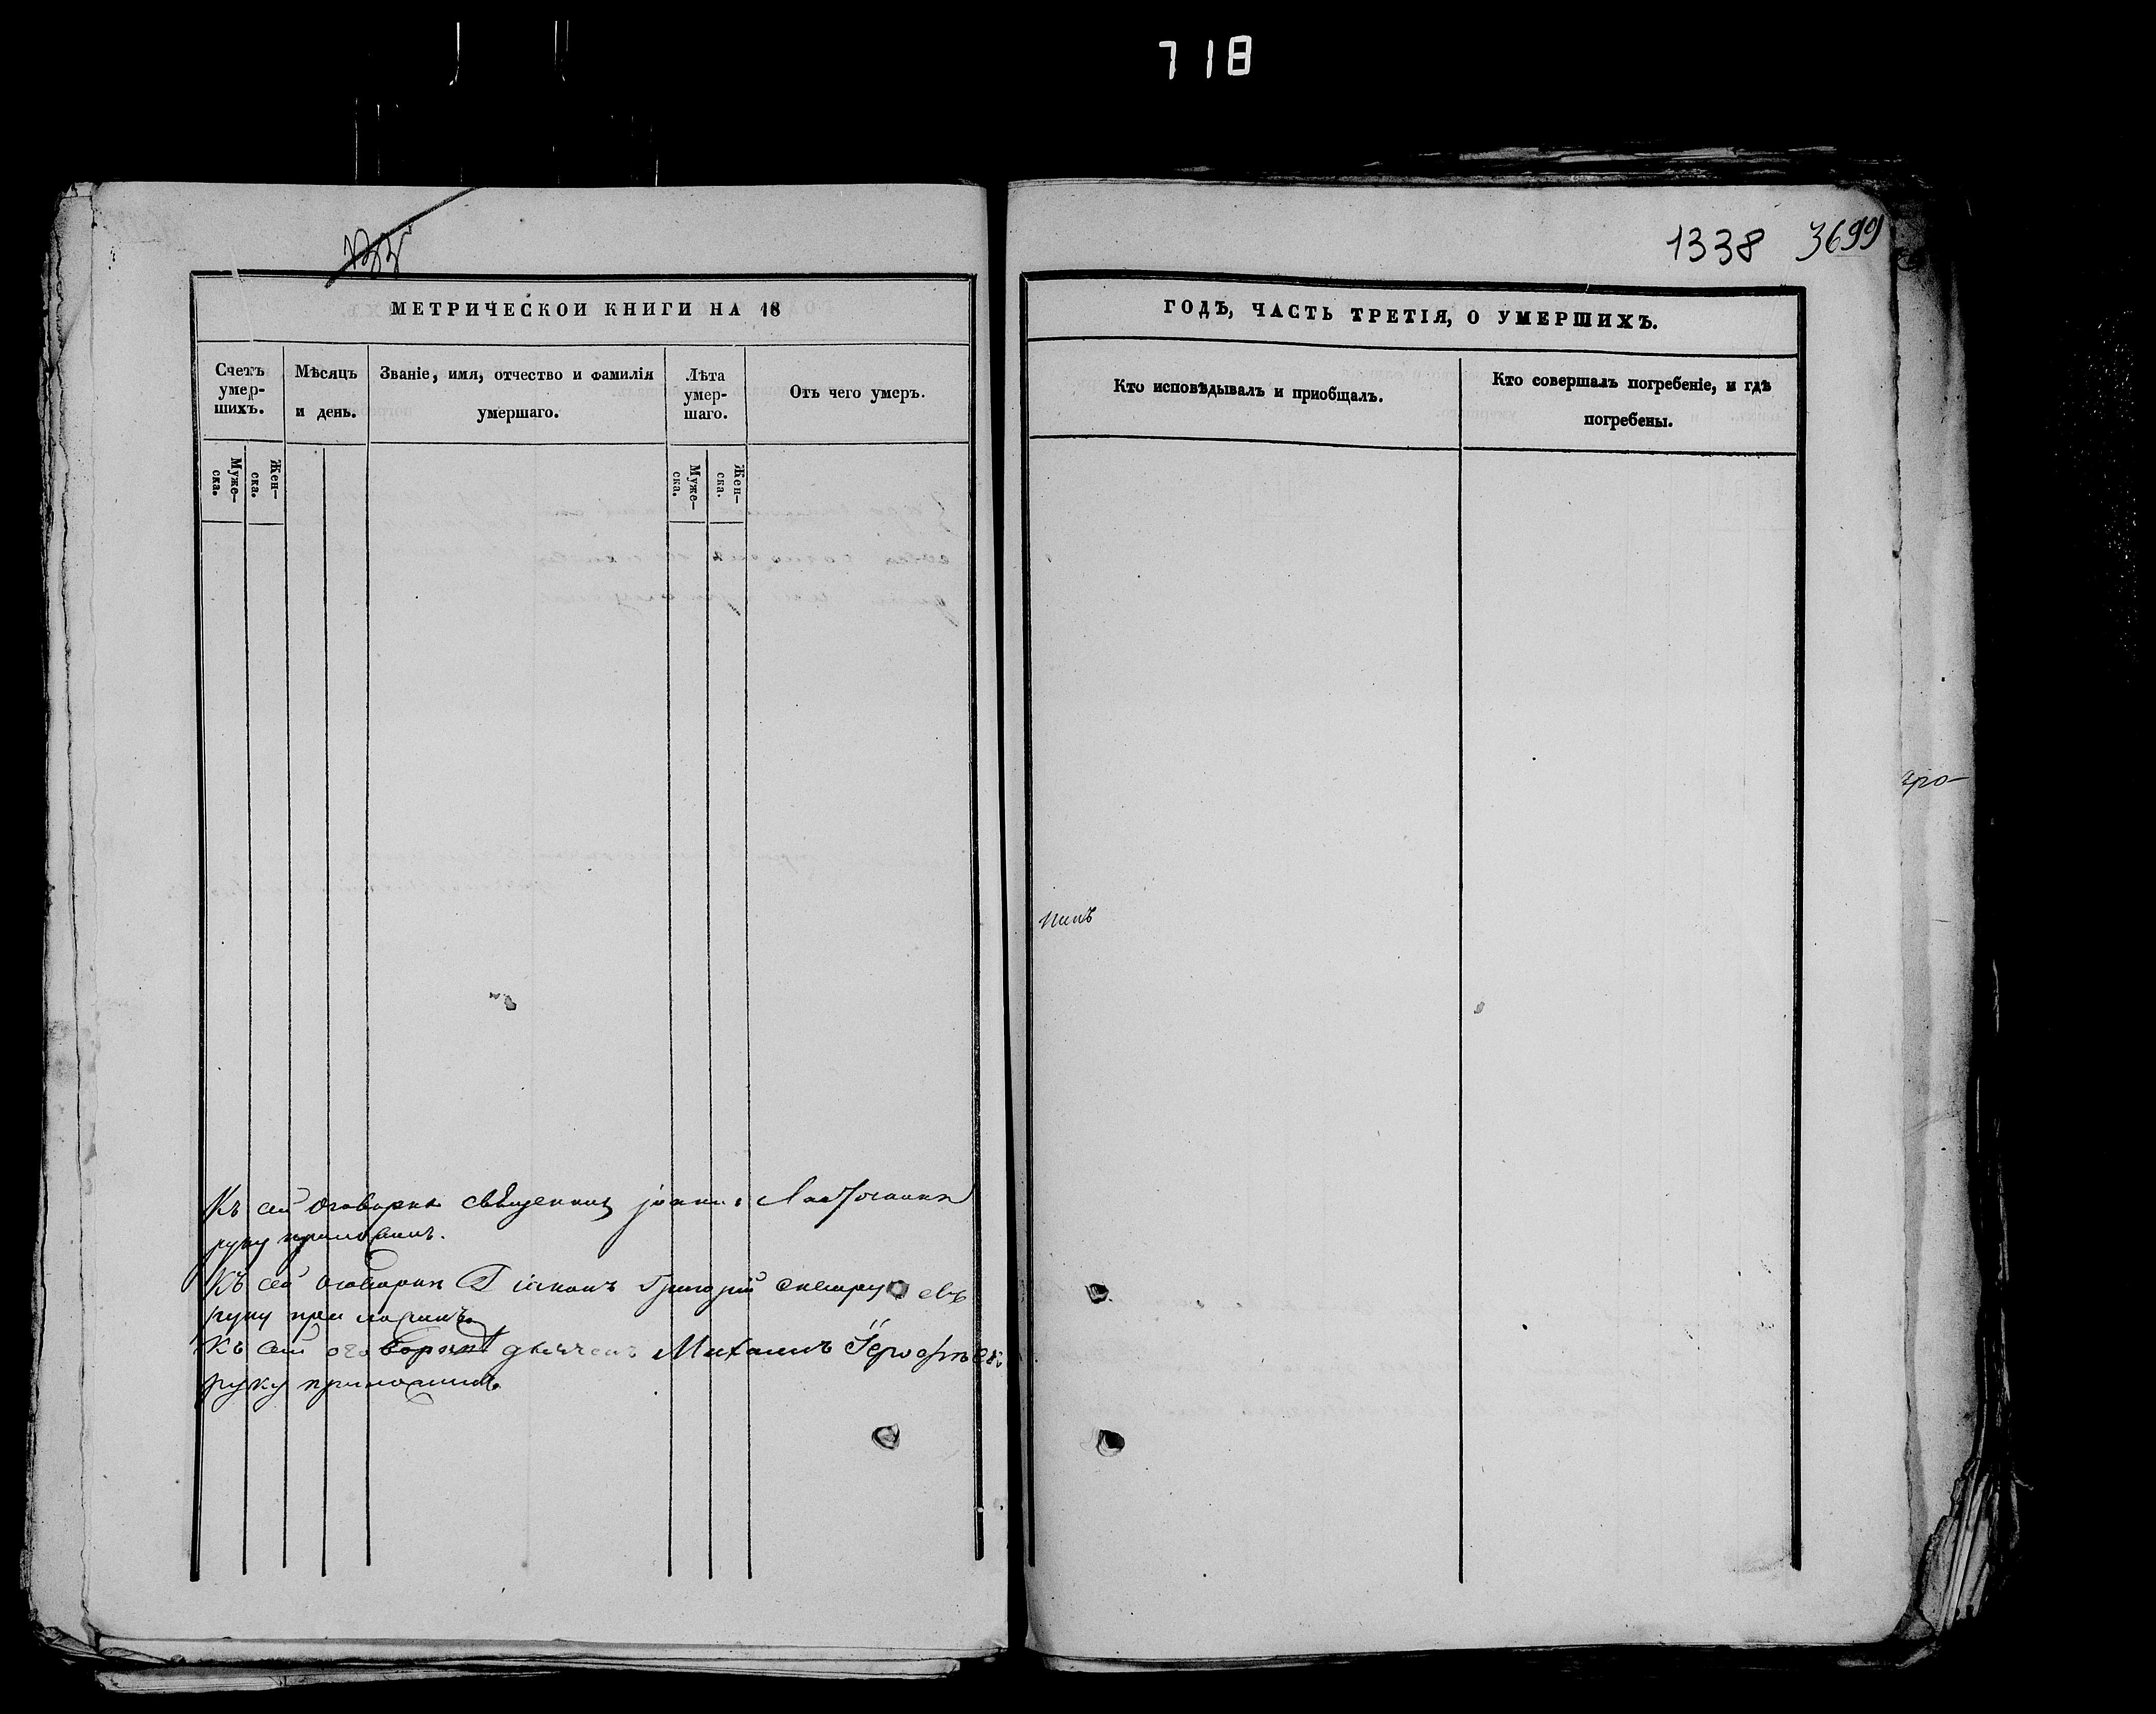 718
1338 3699
МЕТРИЧЕСКОИ КНИГИ НА 18
Счетъ умер-шихъ.
Муже-ска.
Жен-ска.
Мѣсяцъ и день.
Званіе, имя, отчество и фамилія умершаго.
Лѣта умер-шаго.
Муже-ска.
Жен-ска.
Отъ чего умеръ.
Къ сей оговоркѣ священникъ
руку приложилъ.
Къ сей оговоркѣ Діаконъ Григорій
руку приложилъ
Къ сей оговоркѣ дьячокъ Михаилъ
руку приложилъ
ГОДЪ, ЧАСТЬ ТРЕТІЯ, О УМЕРШИХЪ.
Кто исповѣдывалъ и пріобщалъ.
Кто совершалъ погребеніе, и гдѣ
погребены.